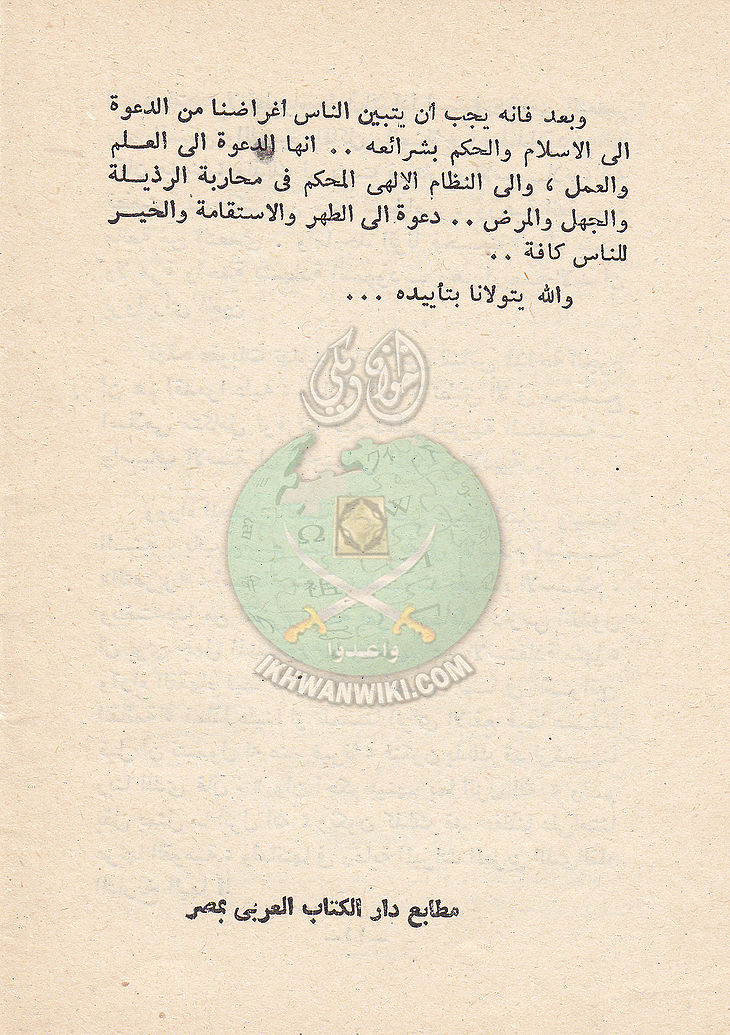 وبعد فانه يجب أن يتبين الناس أغراضنا من الدعوة
الى الاسلام والحكم بشرائعه . . انها الدعوة الى العـلم
والعمل ، والى النظام الالهى المحكم فى محاربة الرذيـلة
والجهل والمرض . . دعوة الى الطهر والاستقامة والخيـر
للناس كافة . .
والله يتولانا بتأييده . . .
إخوان ويكي
Ω
W
واعدوا
IKHWANWIKI.COM
مطابع دار الكتاب العربى بمصر